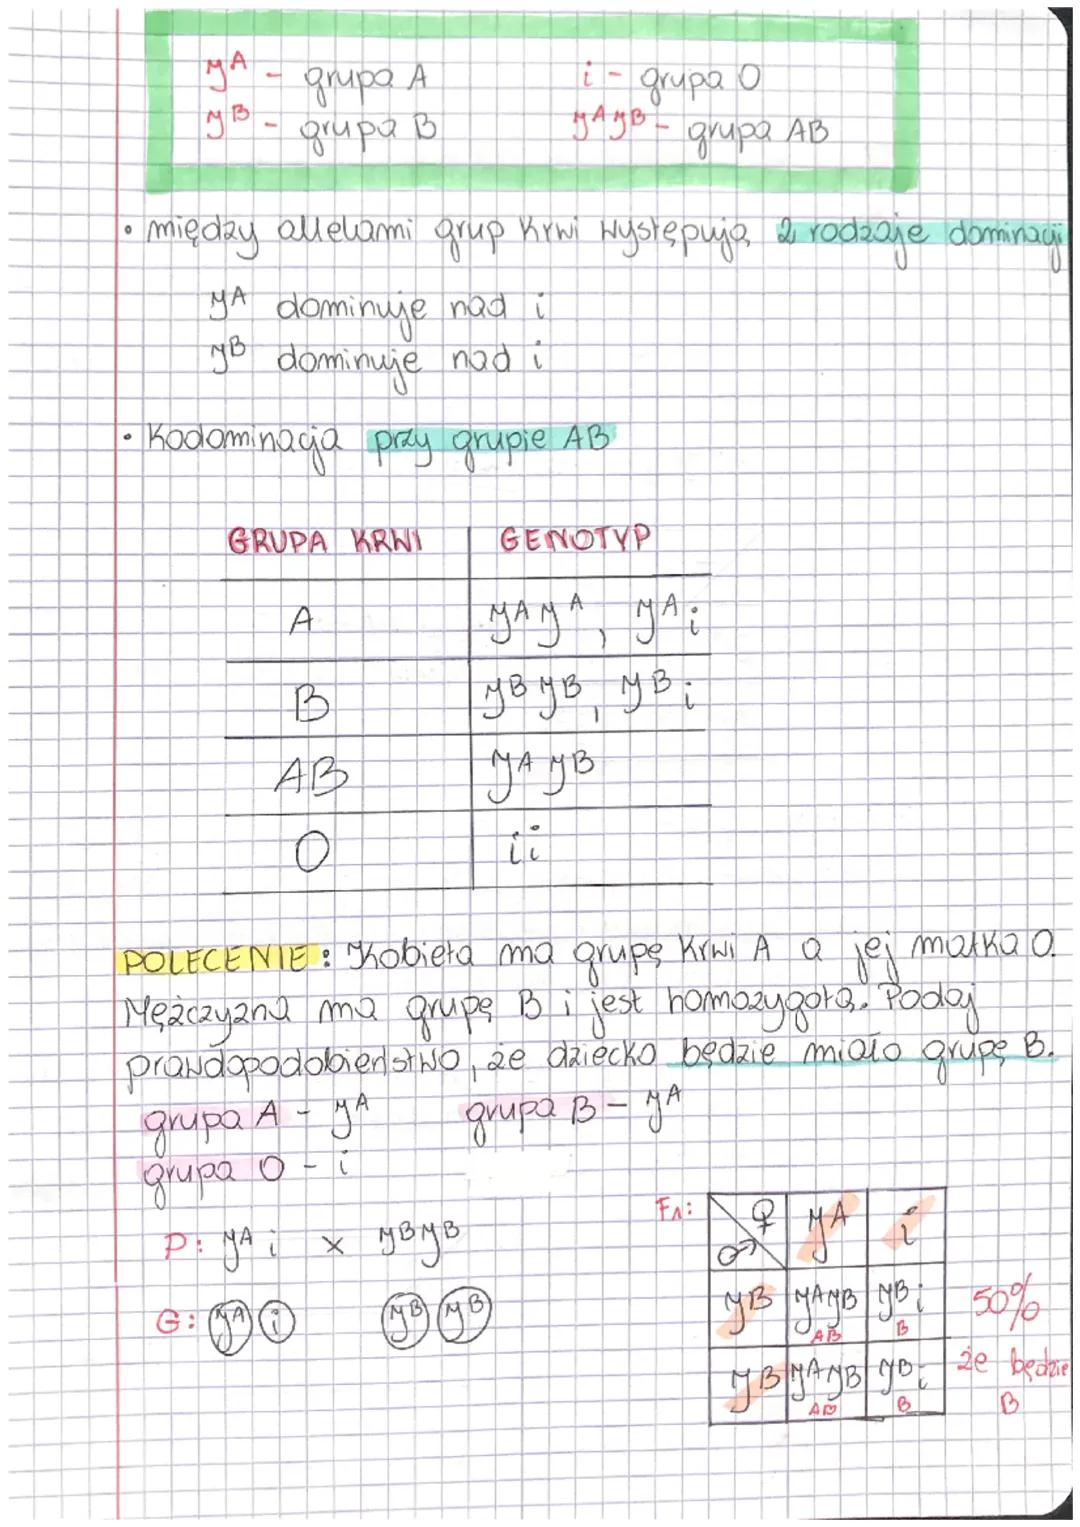 I^A - grupa A i - grupa O
I^B - grupa B I^A I^B - grupa AB
• między allelami grup krwi występują 2 rodzaje dominacji
I^A dominuje nad i
I^B dominuje nad i
• Kodominacja przy grupie AB
GRUPA KRWI GENOTYP
A I^A I^A, I^A i
B I^B I^B, I^B i
AB I^A I^B
O ii
POLECENIE: Kobieta ma grupę krwi A a jej matka O.
Mężczyzna ma grupę B i jest homozygotą. Podaj
prawdopodobieństwo, że dziecko będzie miało grupę B.
grupa A - I^A grupa B - I^A
grupa O - i
P: I^A i x I^B I^B
G: I^A i I^B I^B
F1: ♀ ♂ I^A i
I^B I^A I^B AB I^B i B 50%
I^B I^A I^B AB I^B i B że będzie
B